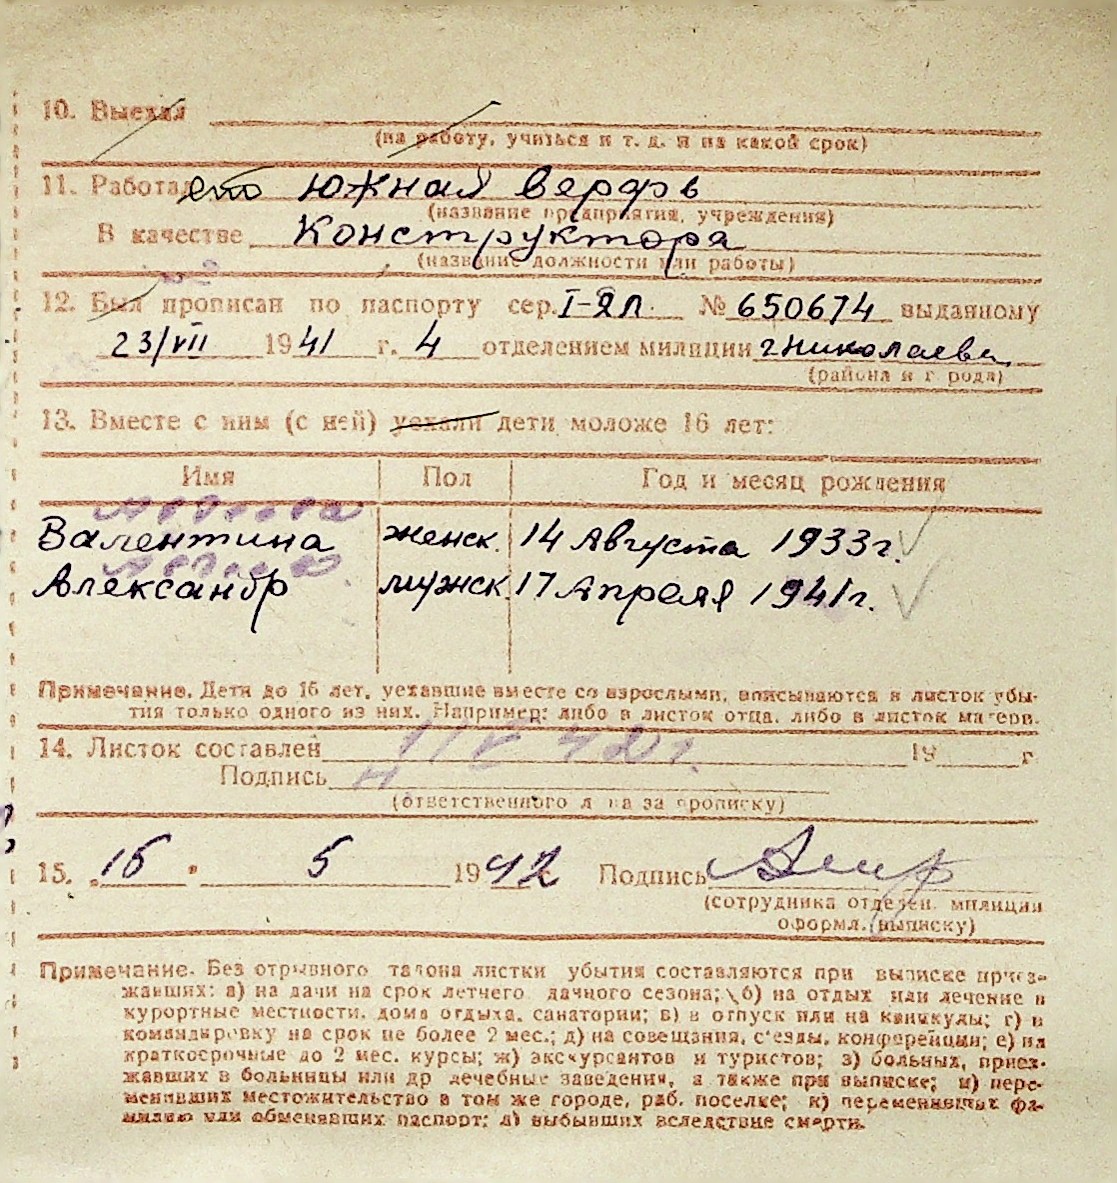 10. Выехал
(на работу, учиться и т. д. и на какой срок)
11. Работает Южная верфь
(название предприятия, учреждения)
В качестве Конструктора
(название должности или работы)
12. Был прописан по паспорту сер. I-ЯЛ. № 650674 выданному
23/VII 1941 г. 4 отделением милиции г Николаева
(района и города)
13. Вместе с ним (с ней) уехали дети моложе 16 лет:
Имя Пол Год и месяц рождения
Валентина женск. 14 Августа 1933г.
Александр мужск. 17 Апреля 1941г.
Примечание. Дети до 16 лет, уехавшие вместе со взрослыми, вписываются в листок убы-
тия только одного из них. Например: либо в листок отца, либо в листок матери.
14. Листок составлен 42 г. 19 г.
Подпись
(ответственного лица за прописку)
15. 16 5 1942 Подпись
(сотрудника отделен. милиции
оформл. выписку)
Примечание. Без отрывного талона листки убытия составляются при выписке приез-
жавших: а) на дачи на срок летнего дачного сезона; б) на отдых или лечение в
курортные местности, дома отдыха, санатории; в) в отпуск или на каникулы; г) в
командировку на срок не более 2 мес.; д) на совещания, с'езды, конференции; е) на
краткосрочные до 2 мес. курсы; ж) экскурсантов и туристов; з) больных, приез-
жавших в больницы или др лечебные заведения, а также при выписке; и) пере-
менивших местожительство в том же городе, раб. поселке; к) переменивших фа-
милию или обменявших паспорт; л) выбывших вследствие смерти.